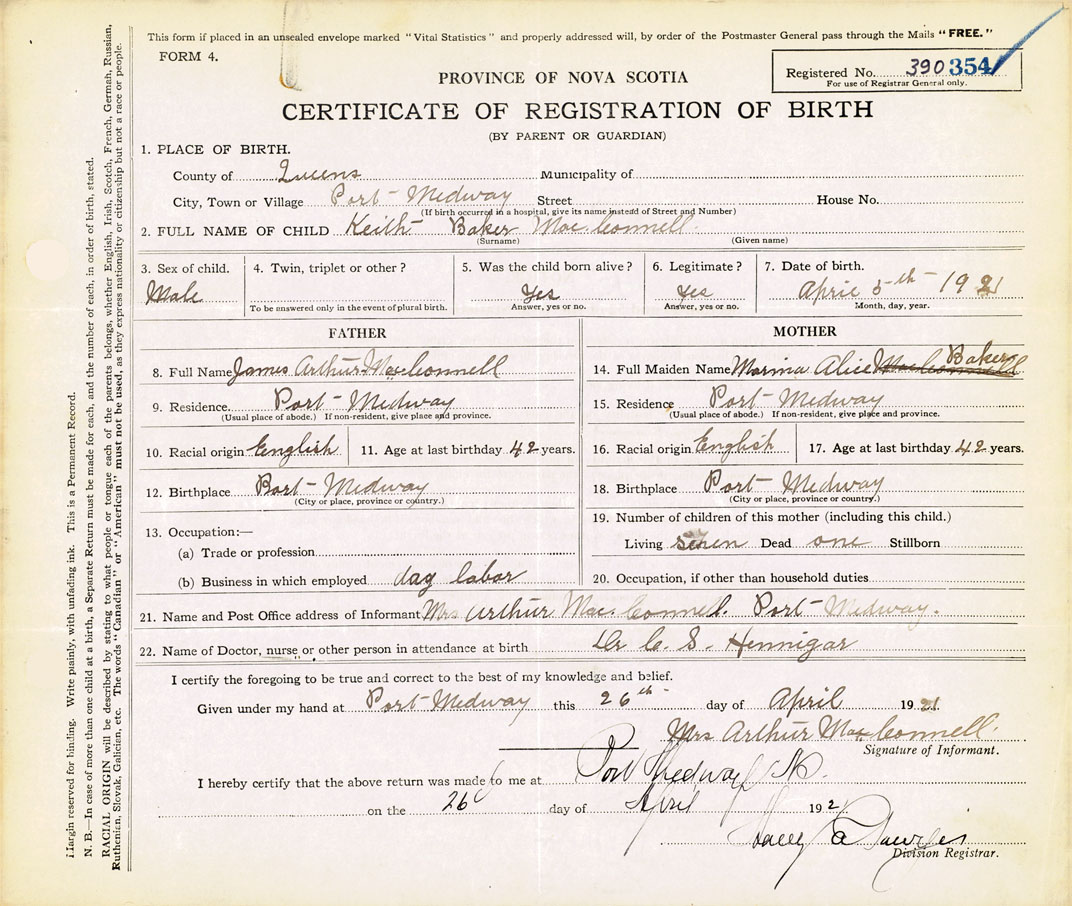 This form if placed in an unsealed envelope marked "Vital Statistics" and properly addressed will, by order of the Postmaster General pass through the Mails "FREE."
FORM 4.
Registered No. 390354
For use of Registrar General only.
PROVINCE OF NOVA SCOTIA
CERTIFICATE OF REGISTRATION OF BIRTH
(BY PARENT OR GUARDIAN)
1. PLACE OF BIRTH.
County of Queens Municipality of
City, Town or Village Port Medway Street House No.
(If birth occurred in a hospital, give its name instead of Street and Number)
2. FULL NAME OF CHILD Keith Baker MacConnell
(Surname) (Given name)
3. Sex of child. 4. Twin, triplet or other? 5. Was the child born alive? 6. Legitimate? 7. Date of birth.
Male Yes Yes April 5th 1921
To be answered only in the event of plural birth. Answer, yes or no. Answer, yes or no. Month, day, year.
FATHER
8. Full Name James Arthur MacConnell
9. Residence Port Medway
(Usual place of abode.) If non-resident, give place and province.
10. Racial origin English 11. Age at last birthday 42 years.
12. Birthplace Port Medway
(City or place, province or country.)
13. Occupation:—
(a) Trade or profession
(b) Business in which employed day labor
MOTHER
14. Full Maiden Name Marina Alice MacConnell Baker
15. Residence Port Medway
(Usual place of abode.) If non-resident, give place and province.
16. Racial origin English 17. Age at last birthday 42 years.
18. Birthplace Port Medway
(City or place, province or country.)
19. Number of children of this mother (including this child.)
Living seven Dead one Stillborn
20. Occupation, if other than household duties
21. Name and Post Office address of Informant Mrs Arthur MacConnell. Port Medway.
22. Name of Doctor, nurse or other person in attendance at birth Dr C. S. Hennigar
I certify the foregoing to be true and correct to the best of my knowledge and belief.
Given under my hand at Port Medway this 26th day of April 1921.
Mrs Arthur MacConnell.
Signature of Informant.
I hereby certify that the above return was made to me at Port Medway NS.
on the 26 day of April 192
Division Registrar.
Margin reserved for binding. Write plainly, with unfading ink. This is a Permanent Record.
N. B.—In case of more than one child at a birth, a Separate Return must be made for each, and the number of each, in order of birth, stated.
RACIAL ORIGIN will be described by stating to what people or tongue each of the parents belongs, whether English, Irish, Scotch, French, German, Russian,
Ruthenian, Slovak, Galician, etc. The words "Canadian" or "American" must not be used, as they express nationality or citizenship but not a race or people.